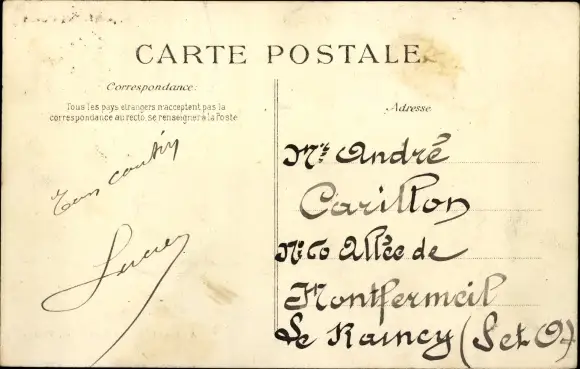 CARTE POSTALE
Correspondance:
Tous les pays étrangers n'acceptent pas la
correspondance au recto, se renseigner à la Poste
Ton cousin
Lucien
Adresse
Mr. André
Carillon
No 60 Allée de
Montfermeil
Le Raincy (S et O)